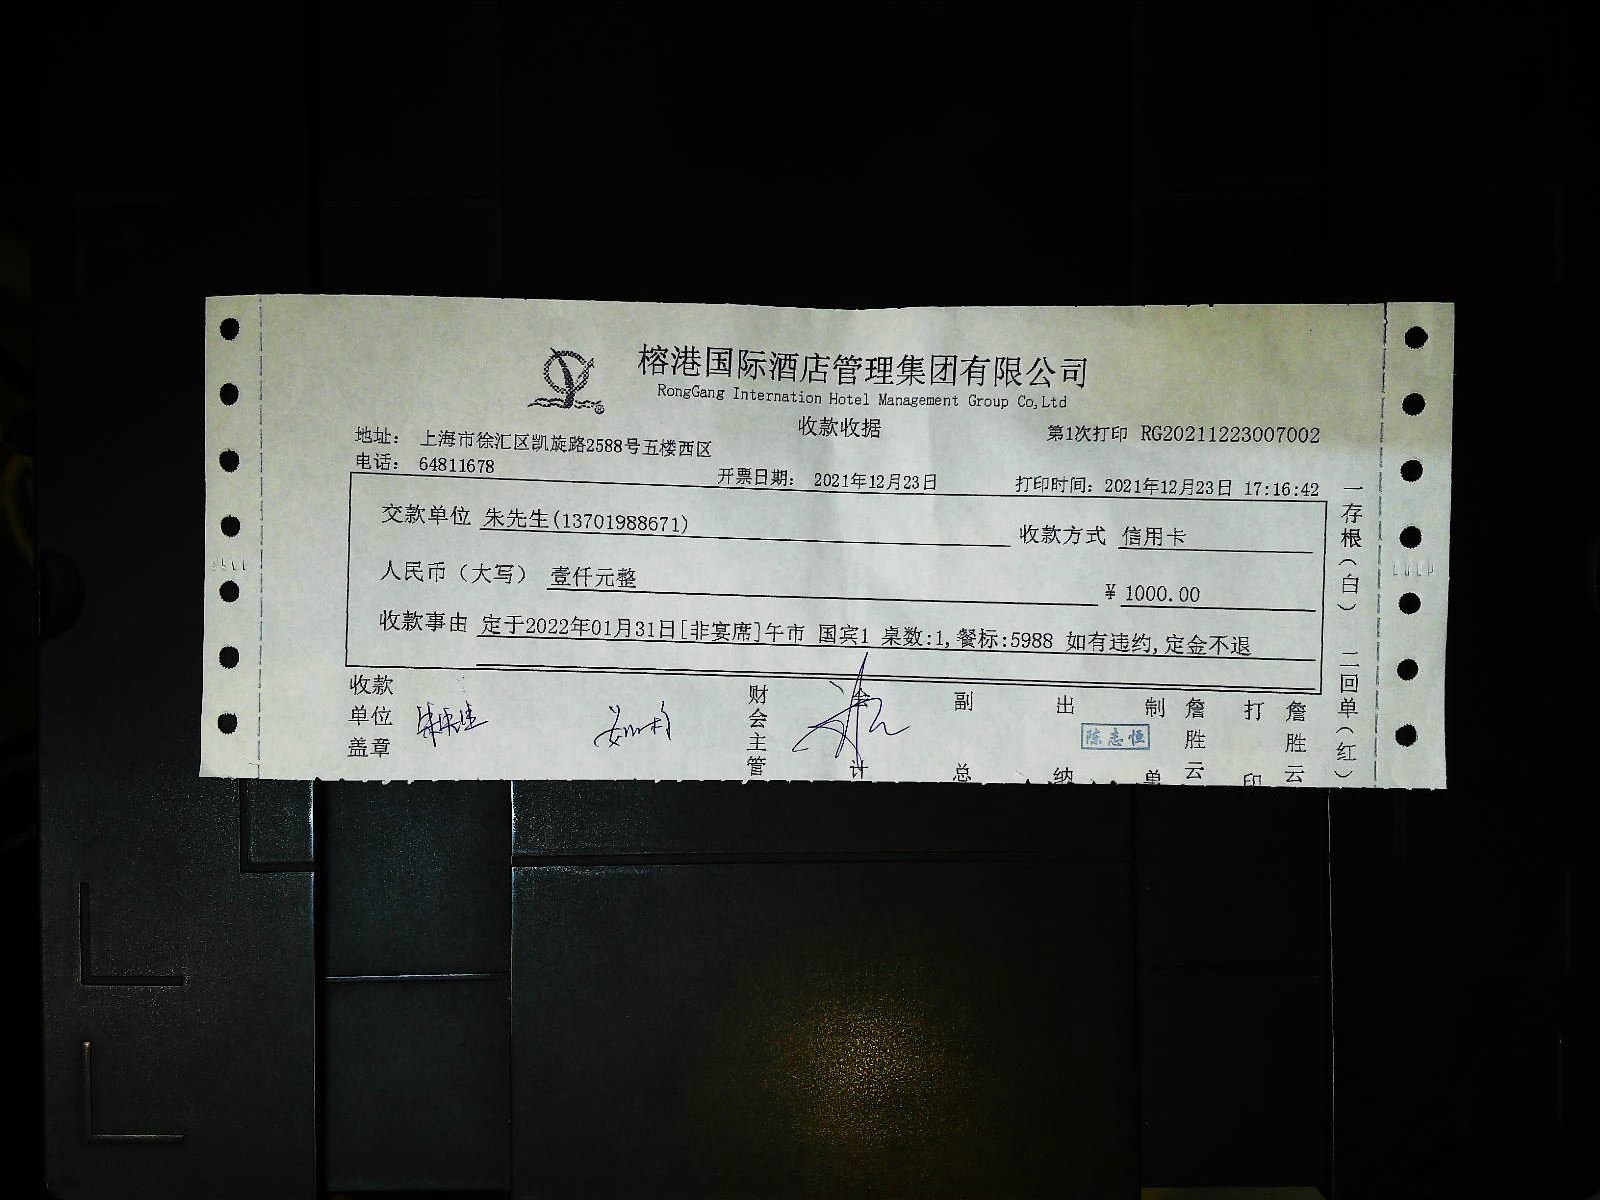 榕港国际酒店管理集团有限公司
RongGang Internation Hotel Management Group Co,Ltd
收款收据
第1次打印 RG20211223007002
地址： 上海市徐汇区凯旋路2588号五楼西区
电话： 64811678
开票日期： 2021年12月23日
打印时间：2021年12月23日 17:16:42
交款单位 朱先生(13701988671)
收款方式 信用卡
人民币（大写） 壹仟元整
¥ 1000.00
收款事由 定于2022年01月31日[非宴席]午市 国宾1 桌数:1,餐标:5988 如有违约,定金不退
收款单位盖章
财会主管
会计
副总
出纳
陈志恒
制单
詹胜云
打印
詹胜云
一存根（白） 二回单（红）